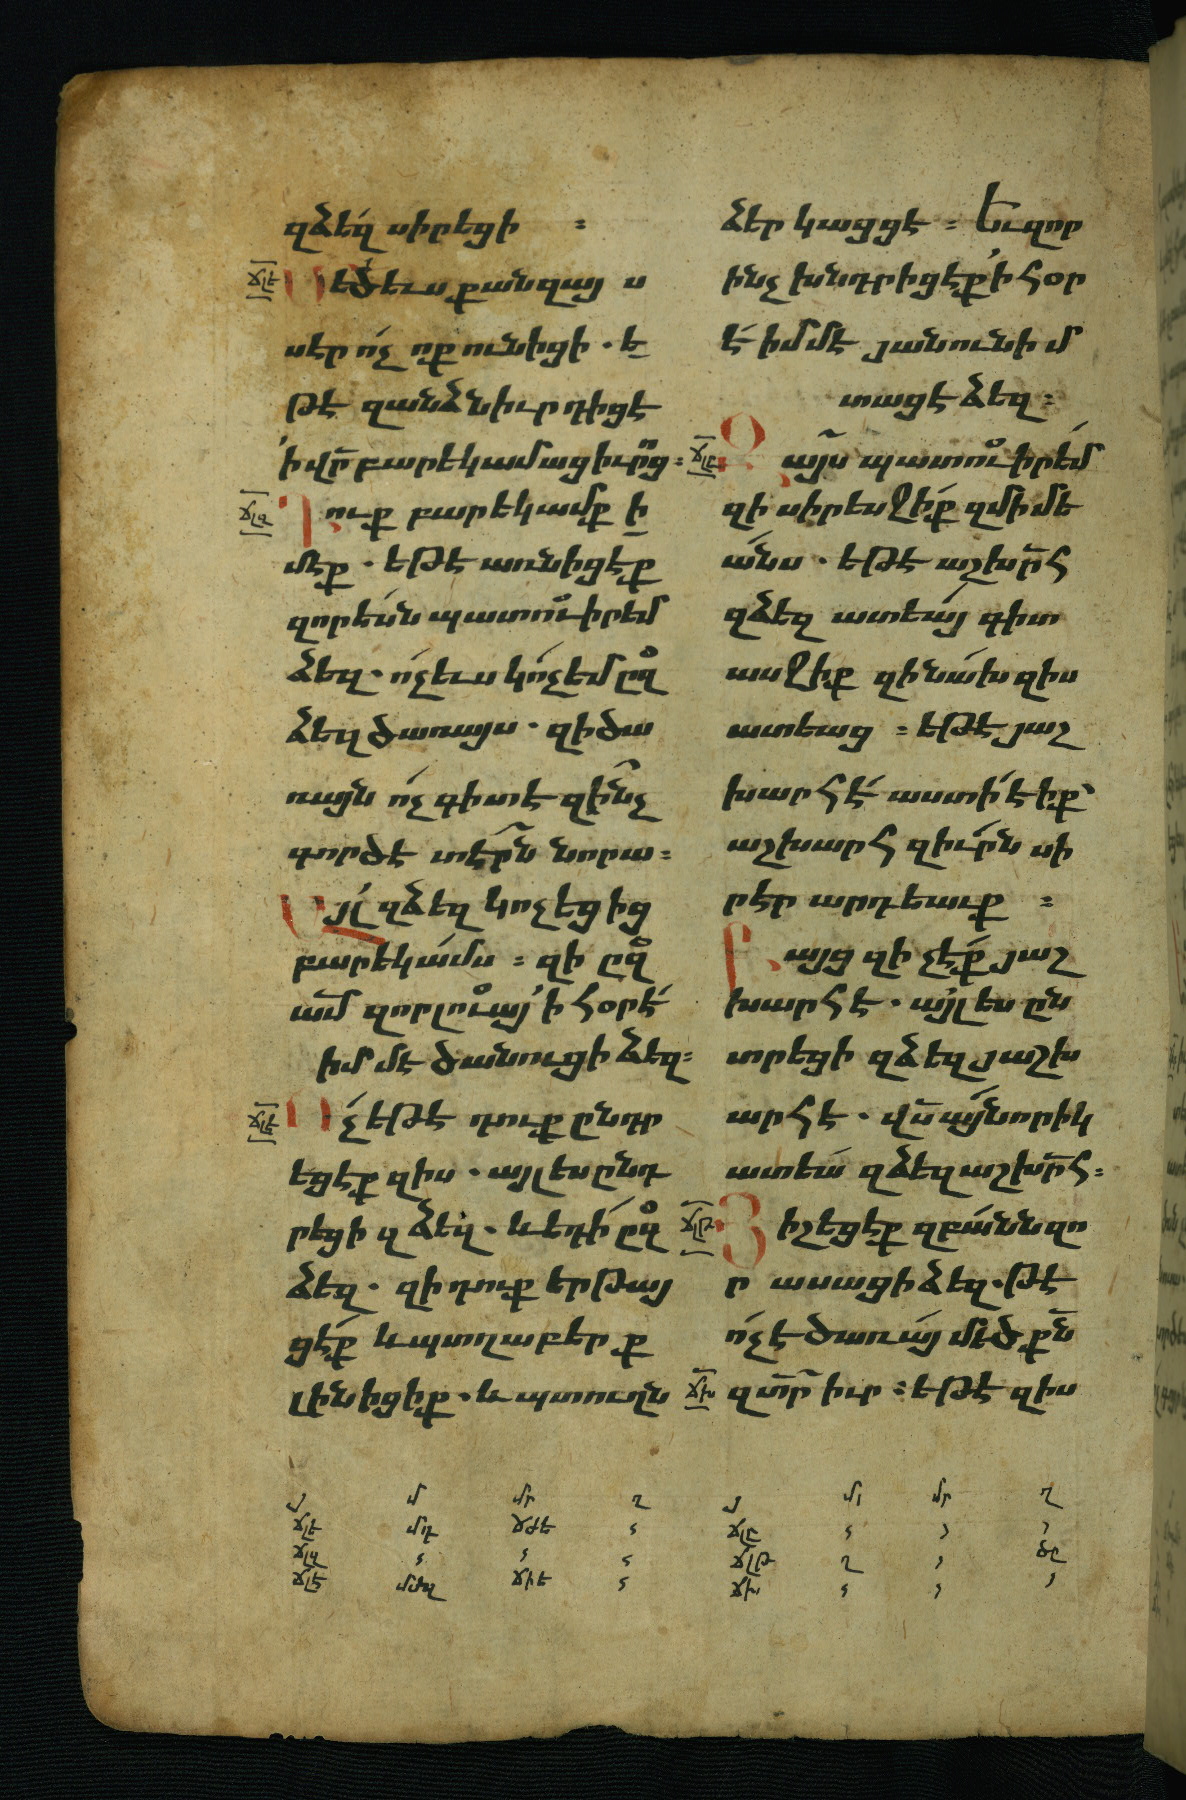 զձե՛զ սիրեցի ։
ՃԼԵ Մեծ ևս քան զայս ս
սէր ո՛չ ոք ունիցի . ե
թէ զանձն իւր դիցէ
՚ի վր̅ բարեկամաց իւր̅ոց ։
ՃԼԶ Դուք բարեկամք ի
մէք . եթէ առնիցէք
զոր ե՛սն պատուիրեմ
ձեզ . ո՛չ ևս կոչեմ ըզ
ձեզ ծառայս . զի ծա
ռայն ո՛չ գիտէ զի՞նչ
գործէ տէրն նորա ։
Այլ զձեզ կոչեցից
բարեկա՛մս ։ զի ըզ
ամ̅ զոր լուայ ՚ի հօրէ
իմմէ ծանուցի ձեզ ։
ՃԼԷ Ո՛չ եթէ դուք ընդր
եցէք զիս . այլ ես ընդ
րեցի զձեզ . և եդի՛ ըզ
ձեզ . զի դուք երթայ
ցէք և պտղաբերք
լինիցիք . և պտուղն
ձեր կացցէ ։ Եւ զոր
ինչ խնդրիցէք ՚ի հօր
է իմմէ յանուն իմ
տացէ ձեզ ։
ՃԼԸ Զայս պատուիրեմ
զի սիրեսջիք զմիմե
անս . եթէ աշխր̅հ
զձեզ ատեայ գիտ
ասջիք զի նախ զիս
ատեաց ։ եթէ յաշ
խարհէ աստի էիք՝
աշխարհ զիւրն սի
րէր արդեաւք ։
Բայց զի չէք յաշ
խարհէ . այլ ես ըն
տրեցի զձեզ յաշխ
արհէ . վս̅ այնորիկ
ատեա զձեզ աշխր̅հ ։
ՃԼԹ Յիշեցէք զբանն զո
ր ասացի ձեզ . թէ
ո՛չ է ծառայ մեծ քն̅
ՃԽ զտր̅ իւր ։ եթէ զիս
յ մ մր ղ
ՃԼԵ ՄԴ ՃԺԵ
ՃԼԶ
ՃԼԷ ՄԺԶ ՃԻԵ
յ մ մր ղ
ՃԼԸ
ՃԼԹ Ղ ԾԸ
ՃԽ